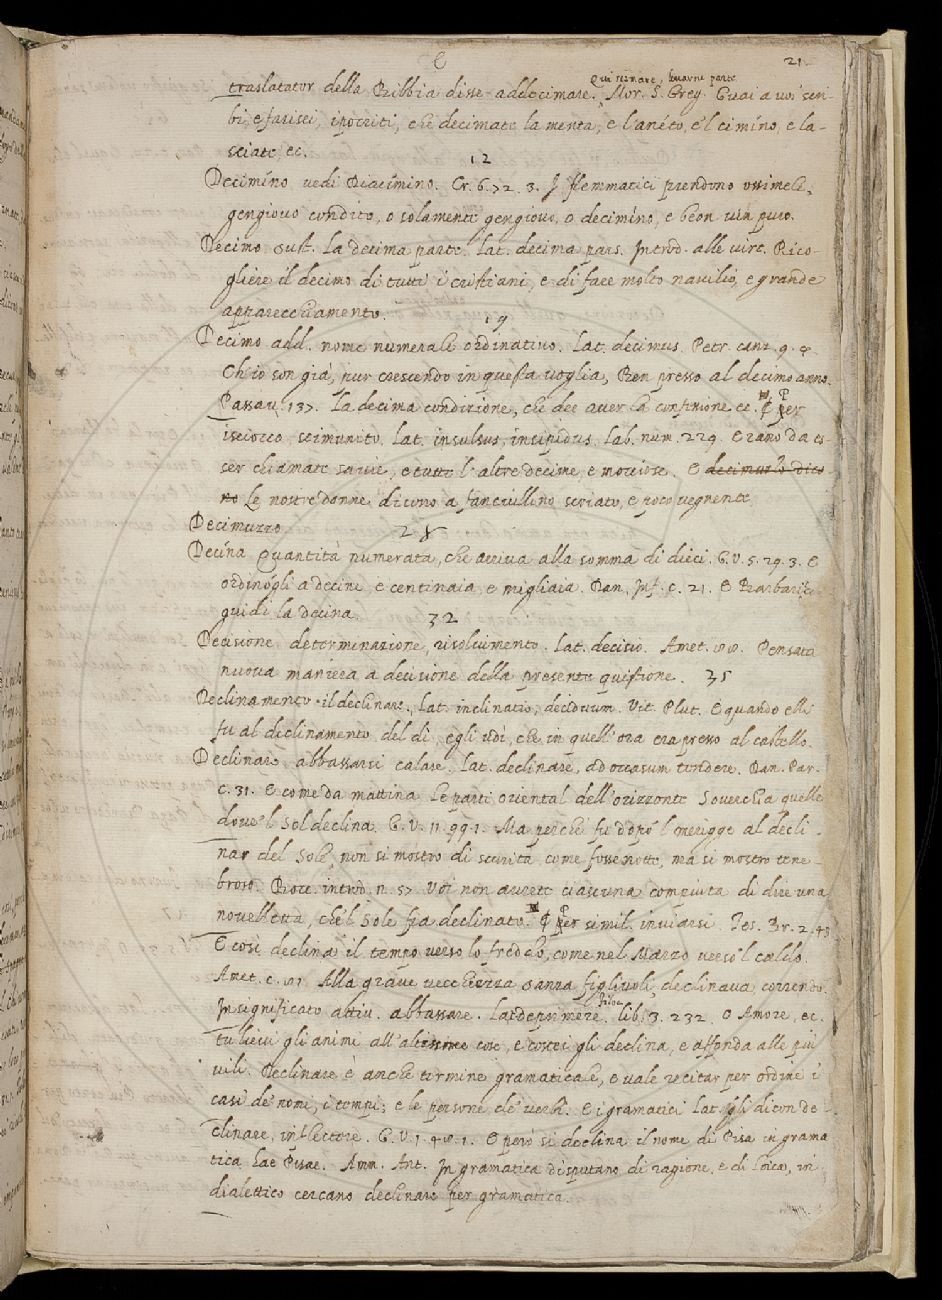 E 21
Qui scemare, levarne parte
traslatator della Bibbia disse addecimare. Mor. S. Greg. Guai a voi scri-
bi, e farisei, ipocriti, che decimate la menta, e l'anéto, e 'l cimíno, e la-
sciate ec.
12
Decimíno vedi Diacimino. Cr. 6. 72. 3. I flemmatici prendono ossimele,
gengiovo condito, o solamente gengiovo, o decimíno, e bean vin puro.
Decimo sust. La decima parte. Lat. decima pars. Introd. alle virt. Rico-
gliere il decimo di tutti i cristiani, e di fare molto navilio, e grande
apparecchiamento.
19
Decimo add. nome numerale ordinativo. Lat. decimus. Petr. canz. 9. 4.
Ch'io son già, pur crescendo in questa voglia, Ben presso al decimo anno.
Passav. 137. La decima condizione, che dee aver la confessione ec. ¶ per
isciocco, scimunito. Lat. insulsus, insipidus. Lab. num. 229. Erano da es-
ser chiamate savie, e tutte l'altre decime, e mocciose. E decimuzzo dico
no Le nostre donne dicono a fanciullino scriato, e poco vegnente
Decimuzzo
28
Decína Quantità numerata, che arriva alla somma di dieci. G. V. 5. 29. 3. E
ordinogli a decine e centinaia e migliaia. Dan. Inf. c. 21. E Barbariccia
guidi la decina.
32
Decisione determinazione, risolvimento. Lat. decisio. Amet. Pensata
nuova maniera a decisione della presente quistione.
35
Declinamento il declinare, Lat. inclinatio, deciduum. Vit. Plut. E quando elli
fu al declinamento del dì, egli udì, che in quell'ora era presso al castello.
Declinare abbassarsi calare. Lat. declinare, ad occasum tendere. Dan. Par.
c. 31. E come da mattina Le parti oriental dell'orizzonte Soverchia quelle
dove 'l Sol declina. G. V. 11. 99. 1. Ma perchè fu dopo 'l merigge al decli-
nar del Sole, non si mostrò di scurità come fosse notte, ma si mostrò tene-
broso. Bocc. introd. n. 57 Voi non avrete ciascuna compiuta di dire una
novelletta, che 'l Sole fia declinato. ¶ per simil. inviarsi Tes. Br. 2. 48
E così declina il tempo verso lo freddo, come nel Marzo verso 'l caldo.
Amet. c. 101 Alla grave vecchiezza sanza figliuoli declinava correndo.
Filoc.
In significato attiv. abbassare. Lat. deprimere. lib. 3. 232. O Amore, ec.
tu lievi gli animi all'altissime cose, e costei gli declina, e affonda alle più
vili. Declinare è anche termine gramaticale, e vale recitar per ordine i
casi de' nomi, i tempi, e le persone de' verbi. E i gramatici Lat. gli dicon de-
clinare, inflectere. G. V. 1. 40. 1. E però si declina il nome di Pisa in grama
tica hae Pisae. Amm. Ant. In gramatica disputano di ragione, e di loica, in
dialettico cercano declinare per gramatica.